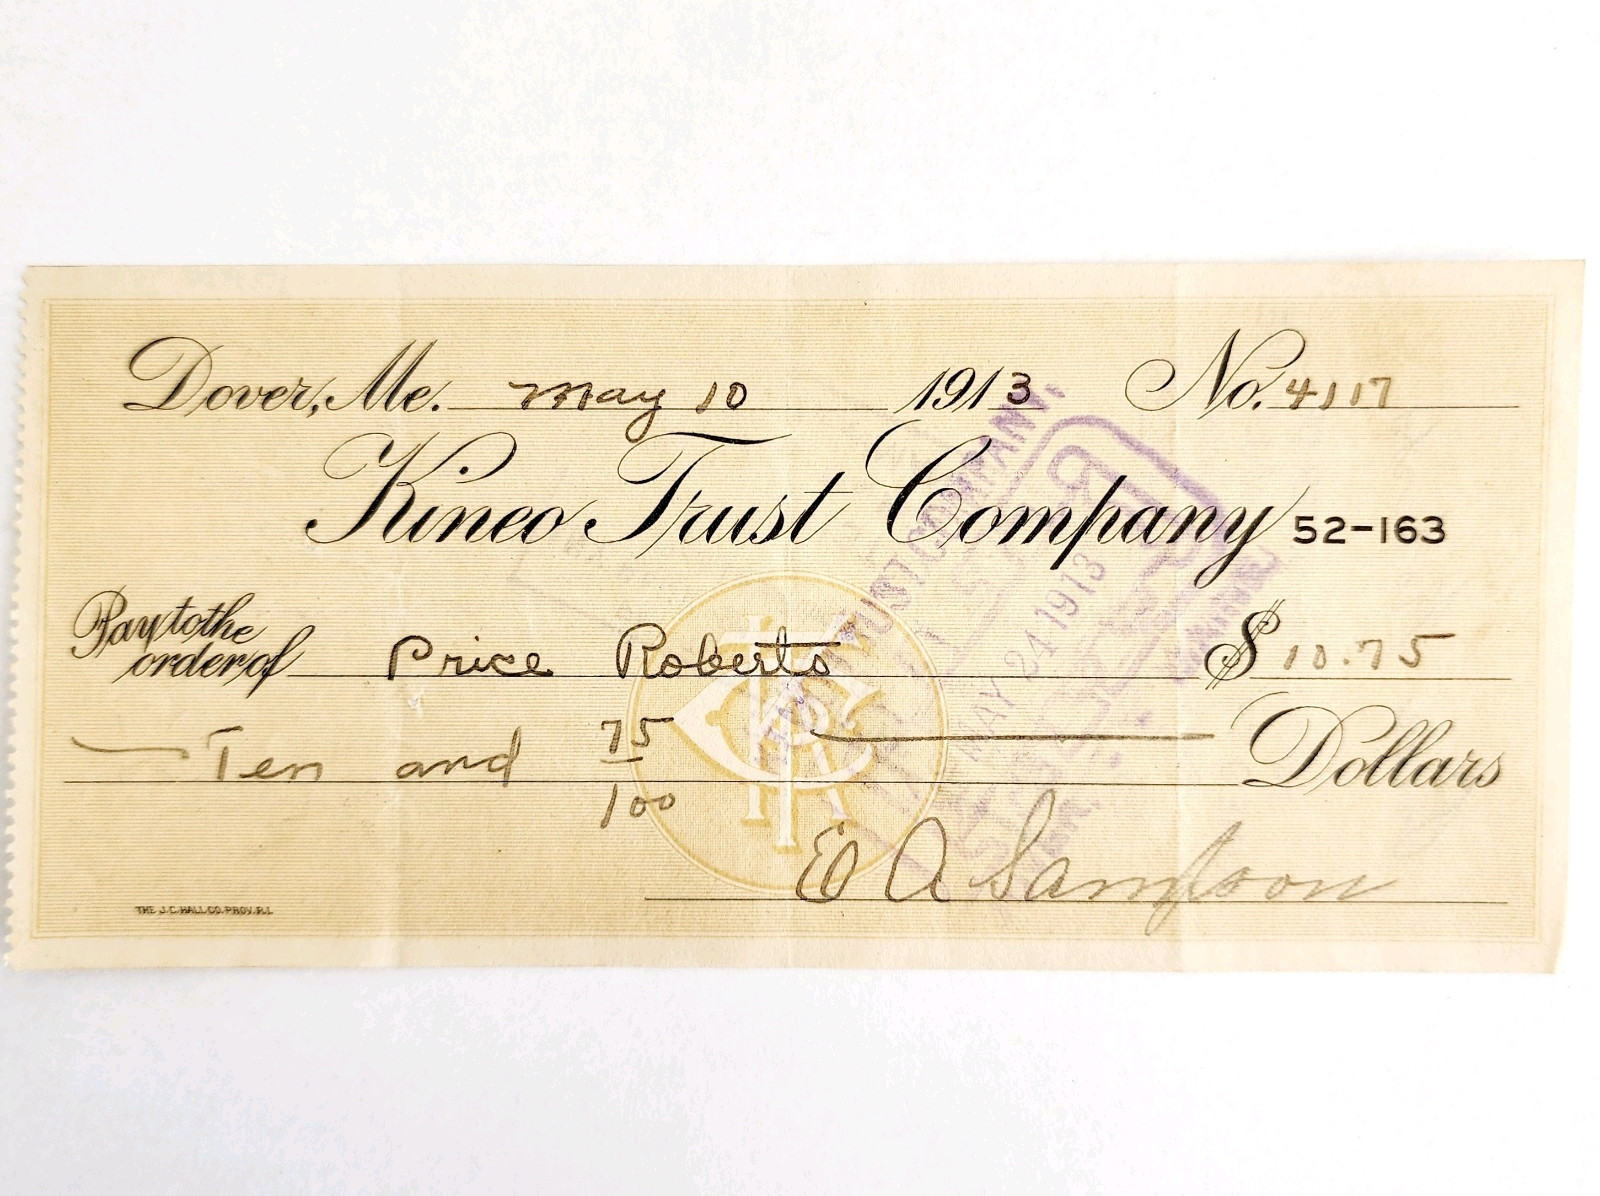 Dover, Me. May 10 1913 No. 4117
Kineo Trust Company 52-163
Pay to the
order of Price Roberts $ 10.75
Ten and 75/100 Dollars
E A Sampson
THE J.C. HALL CO. PROV. R.I.
TRUST COMPANY.
MAY 24 1913